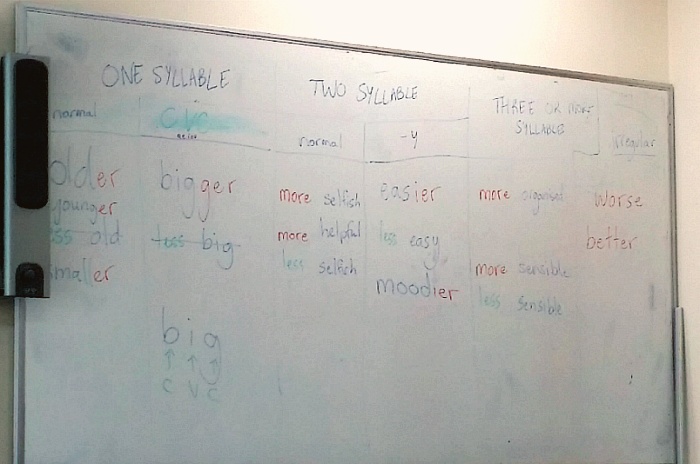 ONE SYLLABLE
TWO SYLLABLE
THREE OR MORE
SYLLABLE
normal
CVC
normal
-y
irregular
older
bigger
more selfish
easier
more organised
worse
younger
less old
less big
more helpful
less easy
better
smaller
less selfish
moodier
more sensible
less sensible
big
↑ ↑ ↑
C V C